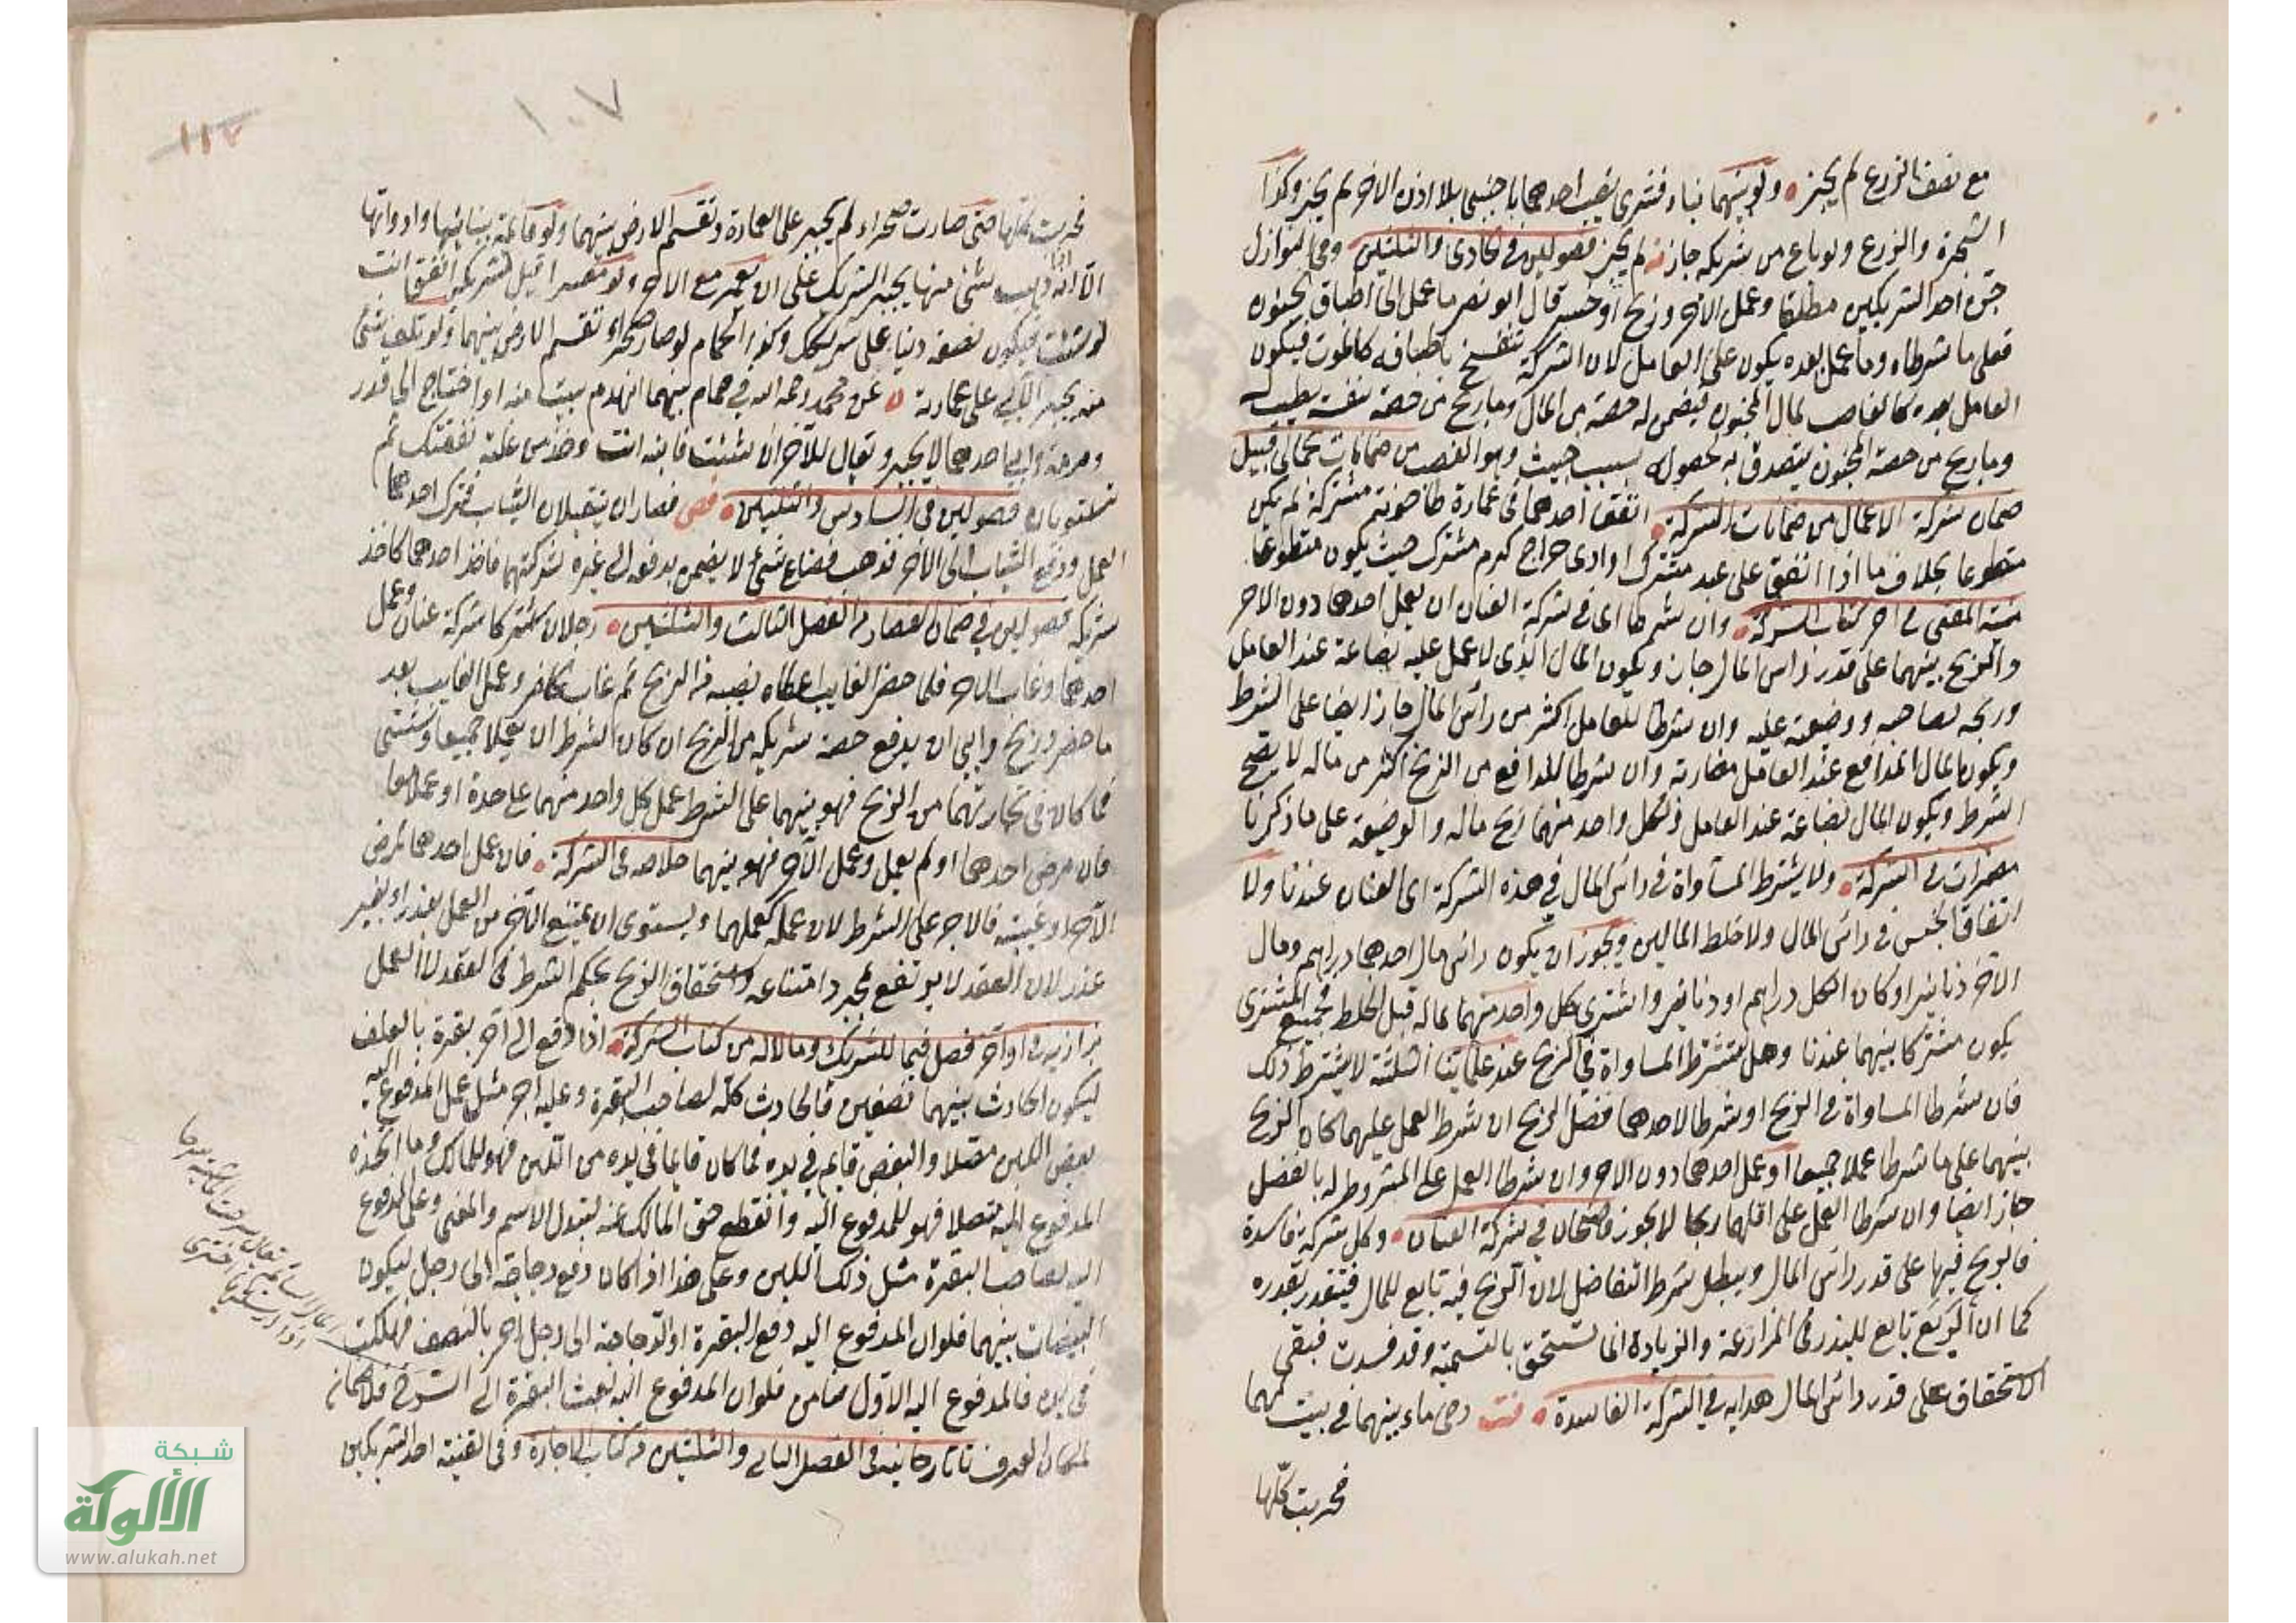 مع نصف الزرع لم يجز ولو بينهما بناء فشرى نصيب احدهما اجنبى بلا اذن الاخر لم يجز وكذا
الشجرة والزرع ولو باع من شريكه جاز لم يجز فصولين فى الحادى والثلثين وفى النوازل
جن احد الشريكين مطبقا وعمل الاخر وربح او خسر قال ابو نصر ما عمل الى اطباق الجنون
فعلى ما شرطاه وما عمل بعده يكون على العامل لان الشركة تنفسخ باطباقه كالموت فيكون
العامل بعده كالغاصب لمال المجنون فيضمن له حصته من المال وما ربح من حصة نفسه يطيب له
وما ربح من حصة المجنون يتصدق به لحصوله بسبب خبيث وهو الغصب من ضمانات
ضمان شركة الاعمال من ضمانات الشركة انفق احدهما فى عمارة طاحونة مشتركة لم يكن
متطوعا بخلاف ما اذا انفق على عبد مشترك او ادى خراج كرم مشترك حيث يكون متطوعا
منية المفتى فى اخر كتاب الشركة وان شرطا اى فى شركة العنان ان يعمل احدهما دون الاخر
والربح بينهما على قدر رأس المال جاز ويكون المال الذى لا عمل عليه بضاعة عند العامل
وربحه لصاحبه ووضيعته عليه وان شرطا للعامل اكثر من رأس المال جاز ايضا على الشرط
ويكون مال الدافع عند العامل مضاربة وان شرطا للدافع من الربح اكثر من ماله لا يصح
الشرط ويكون المال بضاعة عند العامل ولكل واحد منهما ربح ماله والوضيعة على ما ذكرنا
مضمرات فى الشركة ولا يشترط المساواة فى رأس المال فى هذه الشركة اى العنان عندنا ولا
اتفاق الجنس فى رأس المال ولا خلط المالين ويجوز ان يكون رأس مال احدهما دراهم ومال
الاخر دنانير او كان الكل دراهم او دنانير واشترى كل واحد منهما بماله قبل الخلط فجميع المشترى
يكون مشتركا بينهما عندنا وهل تشترط المساواة فى الربح عند علمائنا الثلثة لا يشترط ذلك
فان شرطا المساواة فى الربح او شرطا لاحدهما فضل الربح ان شرط العمل عليهما كان الربح
بينهما على ما شرطا عملا جميعا او عمل احدهما دون الاخر وان شرطا العمل على المشروط له بالفضل
جاز ايضا وان شرطا العمل على اقلهما ربحا لا يجوز قاضيخان فى شركة العنان وكل شركة فاسدة
فالربح فيها على قدر رأس المال ويبطل شرط التفاضل لان الربح فيه تابع للمال فيتقدر بقدره
كما ان الريع تابع للبذر فى المزارعة والزيادة انما تستحق بالتسمية وقد فسدت فبقى
الاستحقاق على قدر رأس المال هدايه فى الشركة الفاسدة رحى ماء بينهما فى بيت لهما
فخربت كلها
فخربت كلها حتى صارت صحراء لم يجبر على العمارة وتقسم الارض بينهما ولو قائمة ببنائها وادواتها
الا انه ذهب شئ منها يجبر الشريك على ان يعمر مع الاخر ولو معسرا قيل لشريكه انفق انت
لو شئت فيكون نصفه دينا على شريكك وكذا الحمام لو صار صحراء تقسم الارض بينهما ولو تلف شئ
منه يجبر الآبى على عمارته عن محمد رحمه الله فى حمام بينهما انهدم بيت منه او احتاج الى قدر
ومرمة وابى احدهما لا يجبر ويقال للآخر ان شئت فابنه انت وخذ من غلته نفقتك ثم
تستويان فصولين فى السادس والثلثين قصاران يتقبلان الثياب فترك احدهما
العمل ودفع الثياب الى الاخر فذهب فضاع شئ لا يضمن بدفعه الى غيره لشركتهما فاخذ احدهما كاخذ
شريكه فصولين فى ضمان القصار من الفصل الثالث والثلثين رجلان اشتركا شركة عنان وعمل
احدهما وغاب الاخر فلما حضر الغايب اعطاه نصيبه من الربح ثم غاب الحاضر وعمل الغايب بعد
ما حضر وربح وابى ان يدفع حصة شريكه من الربح ان كان الشرط ان يعملا جميعا وشتى
فما كان فى تجارتهما من الربح فهو بينهما على الشرط عمل كل واحد منهما على حدة او عملا معا
فان مرض احدهما او لم يعمل وعمل الاخر فهو بينهما خلاصه فى الشركة فان عمل احدهما لمرض
الآخر او غيبته فالاجر على الشرط لان عمله كعملهما ويستوى ان يمتنع الآخر من العمل بعذر او بغير
عذر لان العقد لا يرتفع بمجرد امتناعه واستحقاق الربح بحكم الشرط فى العقد لا العمل
بزازيه فى اواخر فصل فيما للشريك وما لا له من كتاب الشركة اذا دفع الى آخر بقرة بالعلف
ليكون الحادث بينهما نصفين فالحادث كله لصاحب البقرة وعليه اجر مثل عمل المدفوع اليه
بعض اللبن مصلا والبعض قايم فى يده فما كان قايما فى يده من اللبن فهو للمالك وما اتخذه
المدفوع اليه مصلا فهو للمدفوع اليه وانقطع حق المالك عنه لتبدل الاسم والمعنى وعلى المدفوع
اليه لصاحب البقرة مثل ذلك اللبن وعلى هذا اذا كان دفع دجاجة الى رجل ليكون
البيضات بينهما فلو ان المدفوع اليه دفع البقرة او الدجاجة الى رجل اخر بالنصف فهلكت
فى يده فالمدفوع اليه الاول ضامن فلو ان المدفوع اليه بعث البقرة الى السرح فلا ضمان
لمكان العرف تاتارخانيه فى الفصل الثالث والثلثين من كتاب الاجارة وفى القنية احد الشريكين
١٠٧
١١٢
شبكة
الألوكة
www.alukah.net